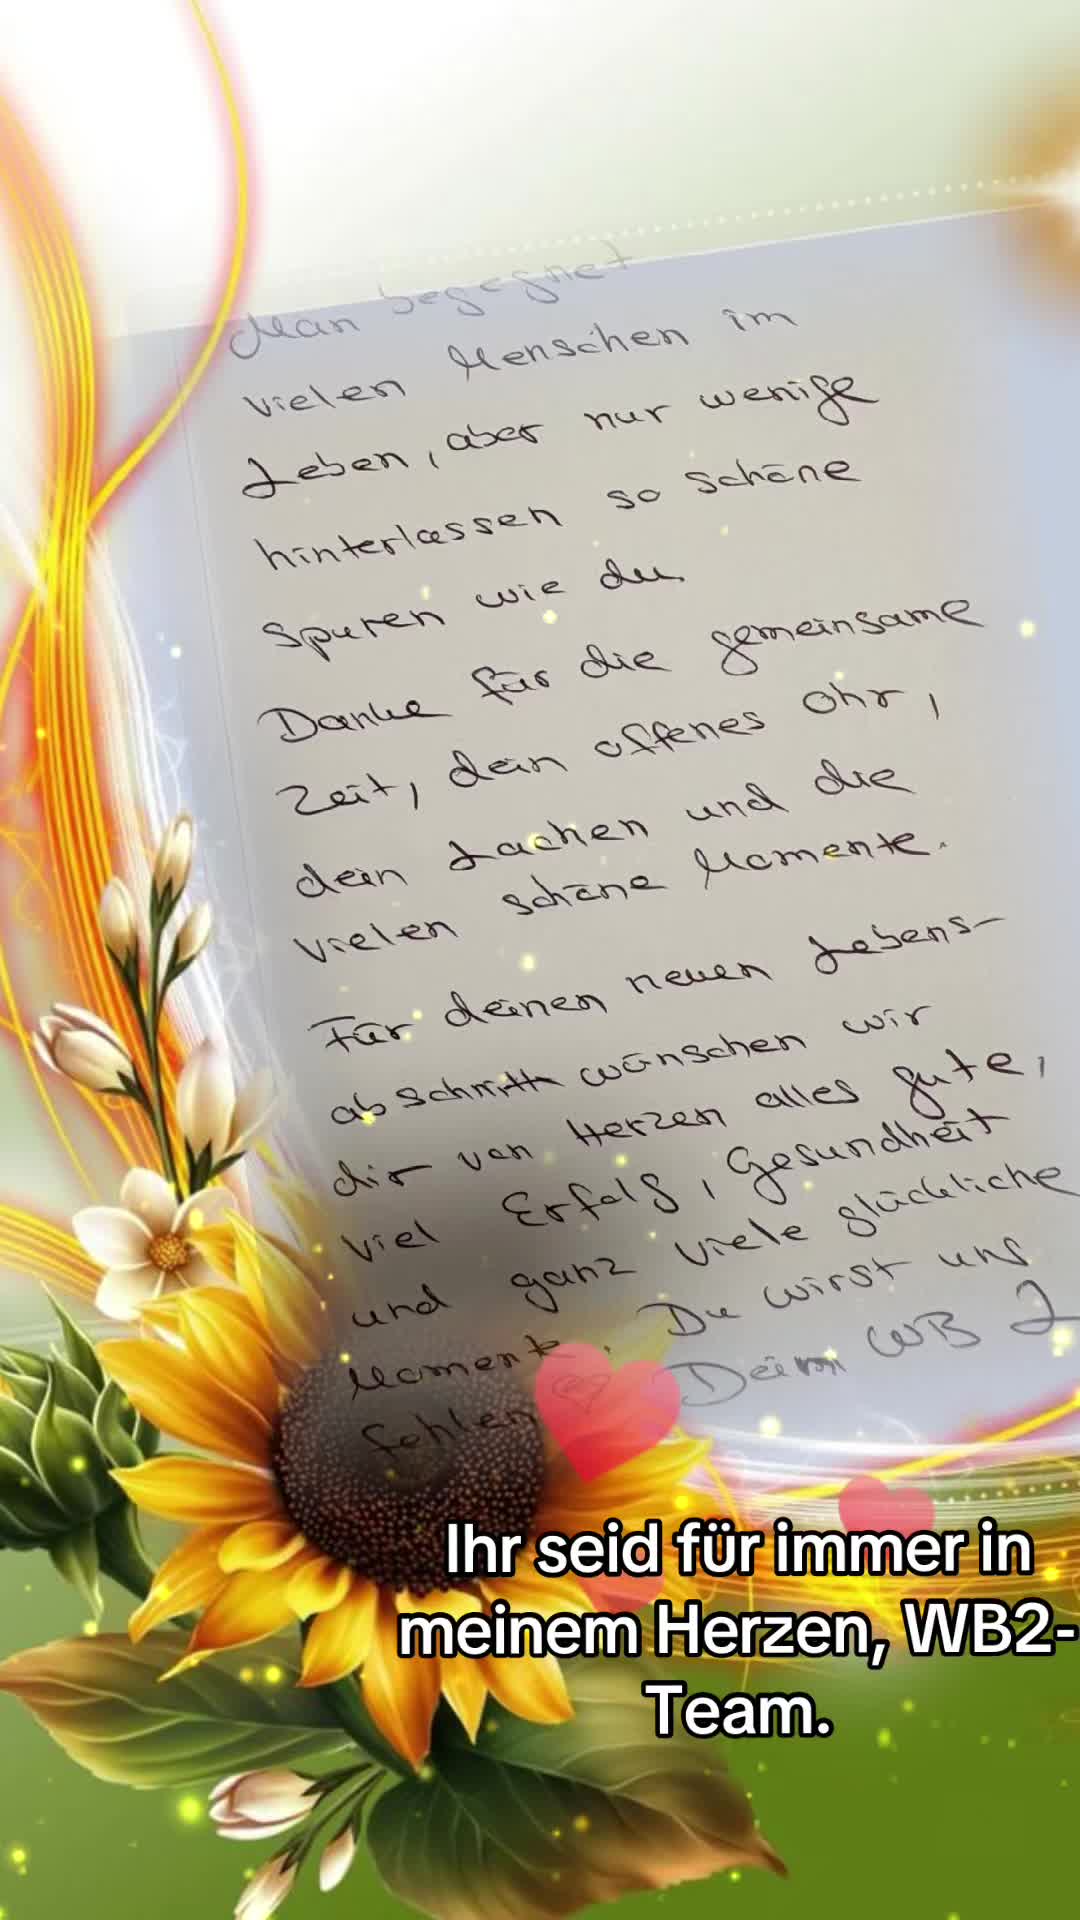 Man begegnet
vielen Menschen im
Leben, aber nur wenige
hinterlassen so schöne
Spuren wie du.
Danke für die gemeinsame
Zeit, dein offenes Ohr,
dein Lachen und die
vielen schöne Momente.
Für deinen neuen Lebens-
abschnitt wünschen wir
dir von Herzen alles gute,
viel Erfolg, Gesundheit
und ganz viele glückliche
Momente. Du wirst uns
fehlen Dein WB 2
Ihr seid für immer in
meinem Herzen, WB2-
Team.